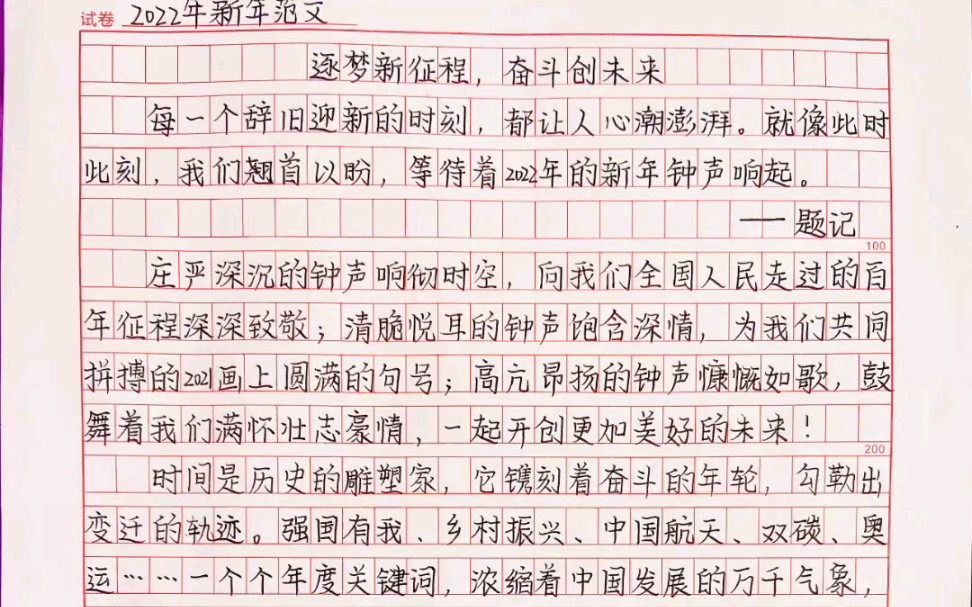 试卷 2022年新年范文
逐梦新征程，奋斗创未来
每一个辞旧迎新的时刻，都让人心潮澎湃。就像此时
此刻，我们翘首以盼，等待着2022年的新年钟声响起。
——题记
100
庄严深沉的钟声响彻时空，向我们全国人民走过的百
年征程深深致敬；清脆悦耳的钟声饱含深情，为我们共同
拼搏的2021画上圆满的句号；高亢昂扬的钟声慷慨如歌，鼓
舞着我们满怀壮志豪情，一起开创更加美好的未来！
200
时间是历史的雕塑家，它镌刻着奋斗的年轮，勾勒出
变迁的轨迹。强国有我、乡村振兴、中国航天、双碳、奥
运……一个个年度关键词，浓缩着中国发展的万千气象，